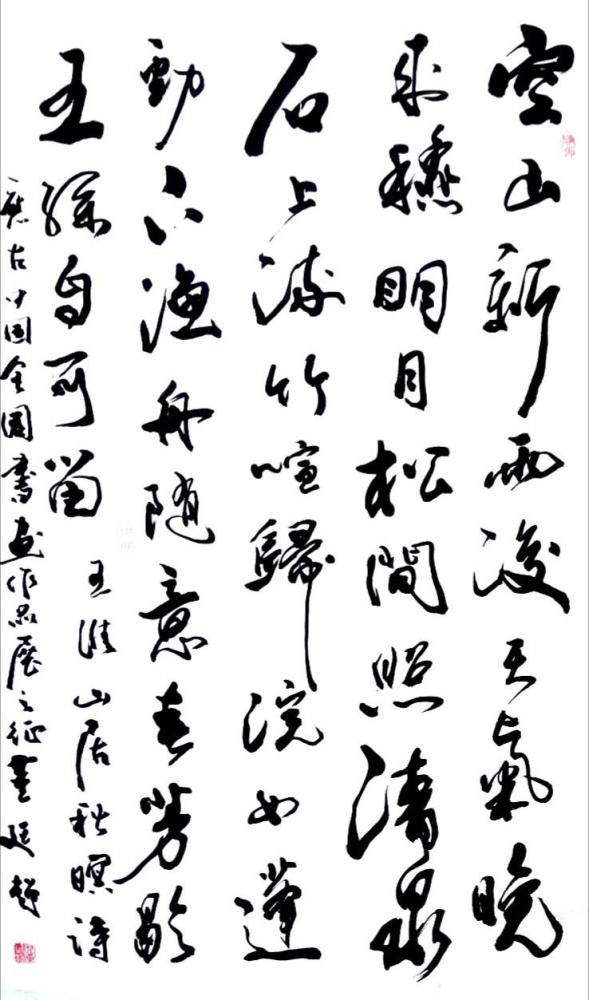 空山新雨後天氣晚
来穐明月松間照清泉
石上流竹喧歸浣女蓮
動下漁舟隨意春芳歇
王孫自可留
王維山居秋暝詩
古中国全国書画作品展之征董廷